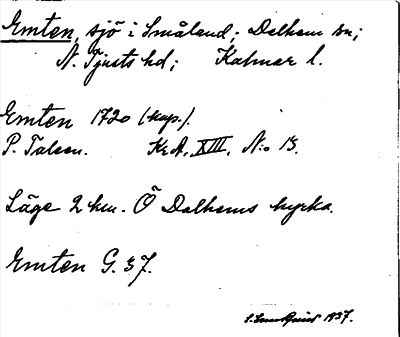 Emten, sjö i Småland; Dalhem sn;
N. Tjusts hd; Kalmar l.
Emten 1720 (kop.).
P. Talsen. Kr.A. XIII, N:o 13.
Läge 2 km. Ö Dalhems kyrka.
Emten G. 57.
1937.